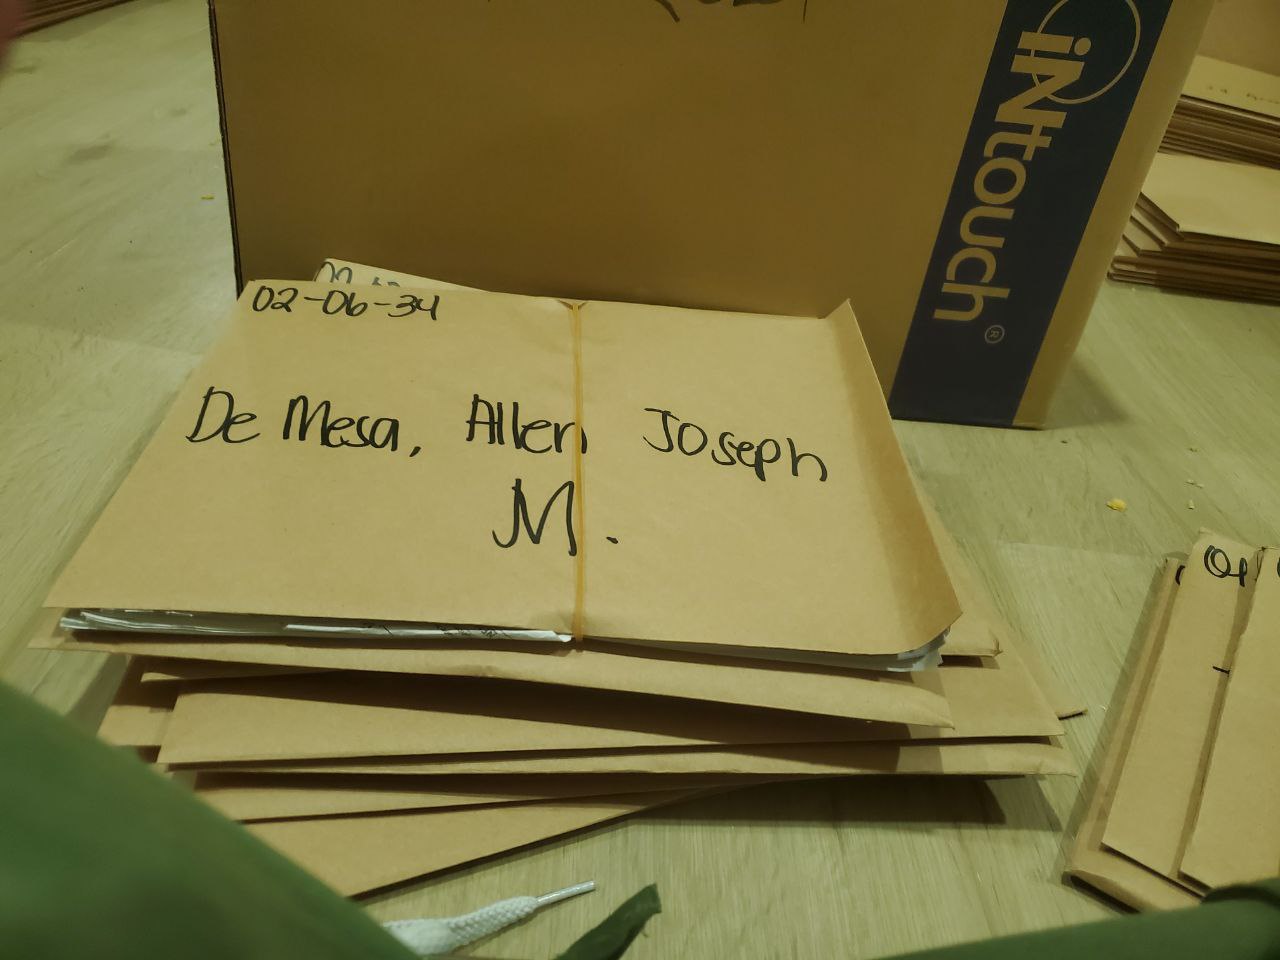 iNtouch®
02-06-34
De Mesa, Allen Joseph
M.